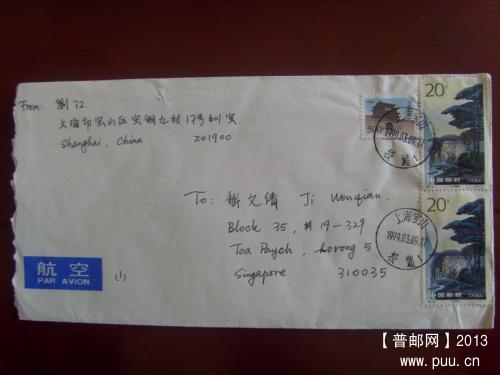 From: 劉江
上海市宝山区宝钢九村17号601室
Shanghai, China 201900
To: 嵇文倩 Ji Wenqian
Block 35, #19-329
Toa Payoh, Lorong 5
Singapore 310035
航空
PAR AVION
(1)
500
20
中国邮政 CHINA
20
中国邮政 CHINA
上海宝山
1999.03.09.17
上海宝山
1999.03.09.17
【普邮网】2013
www.puu.cn